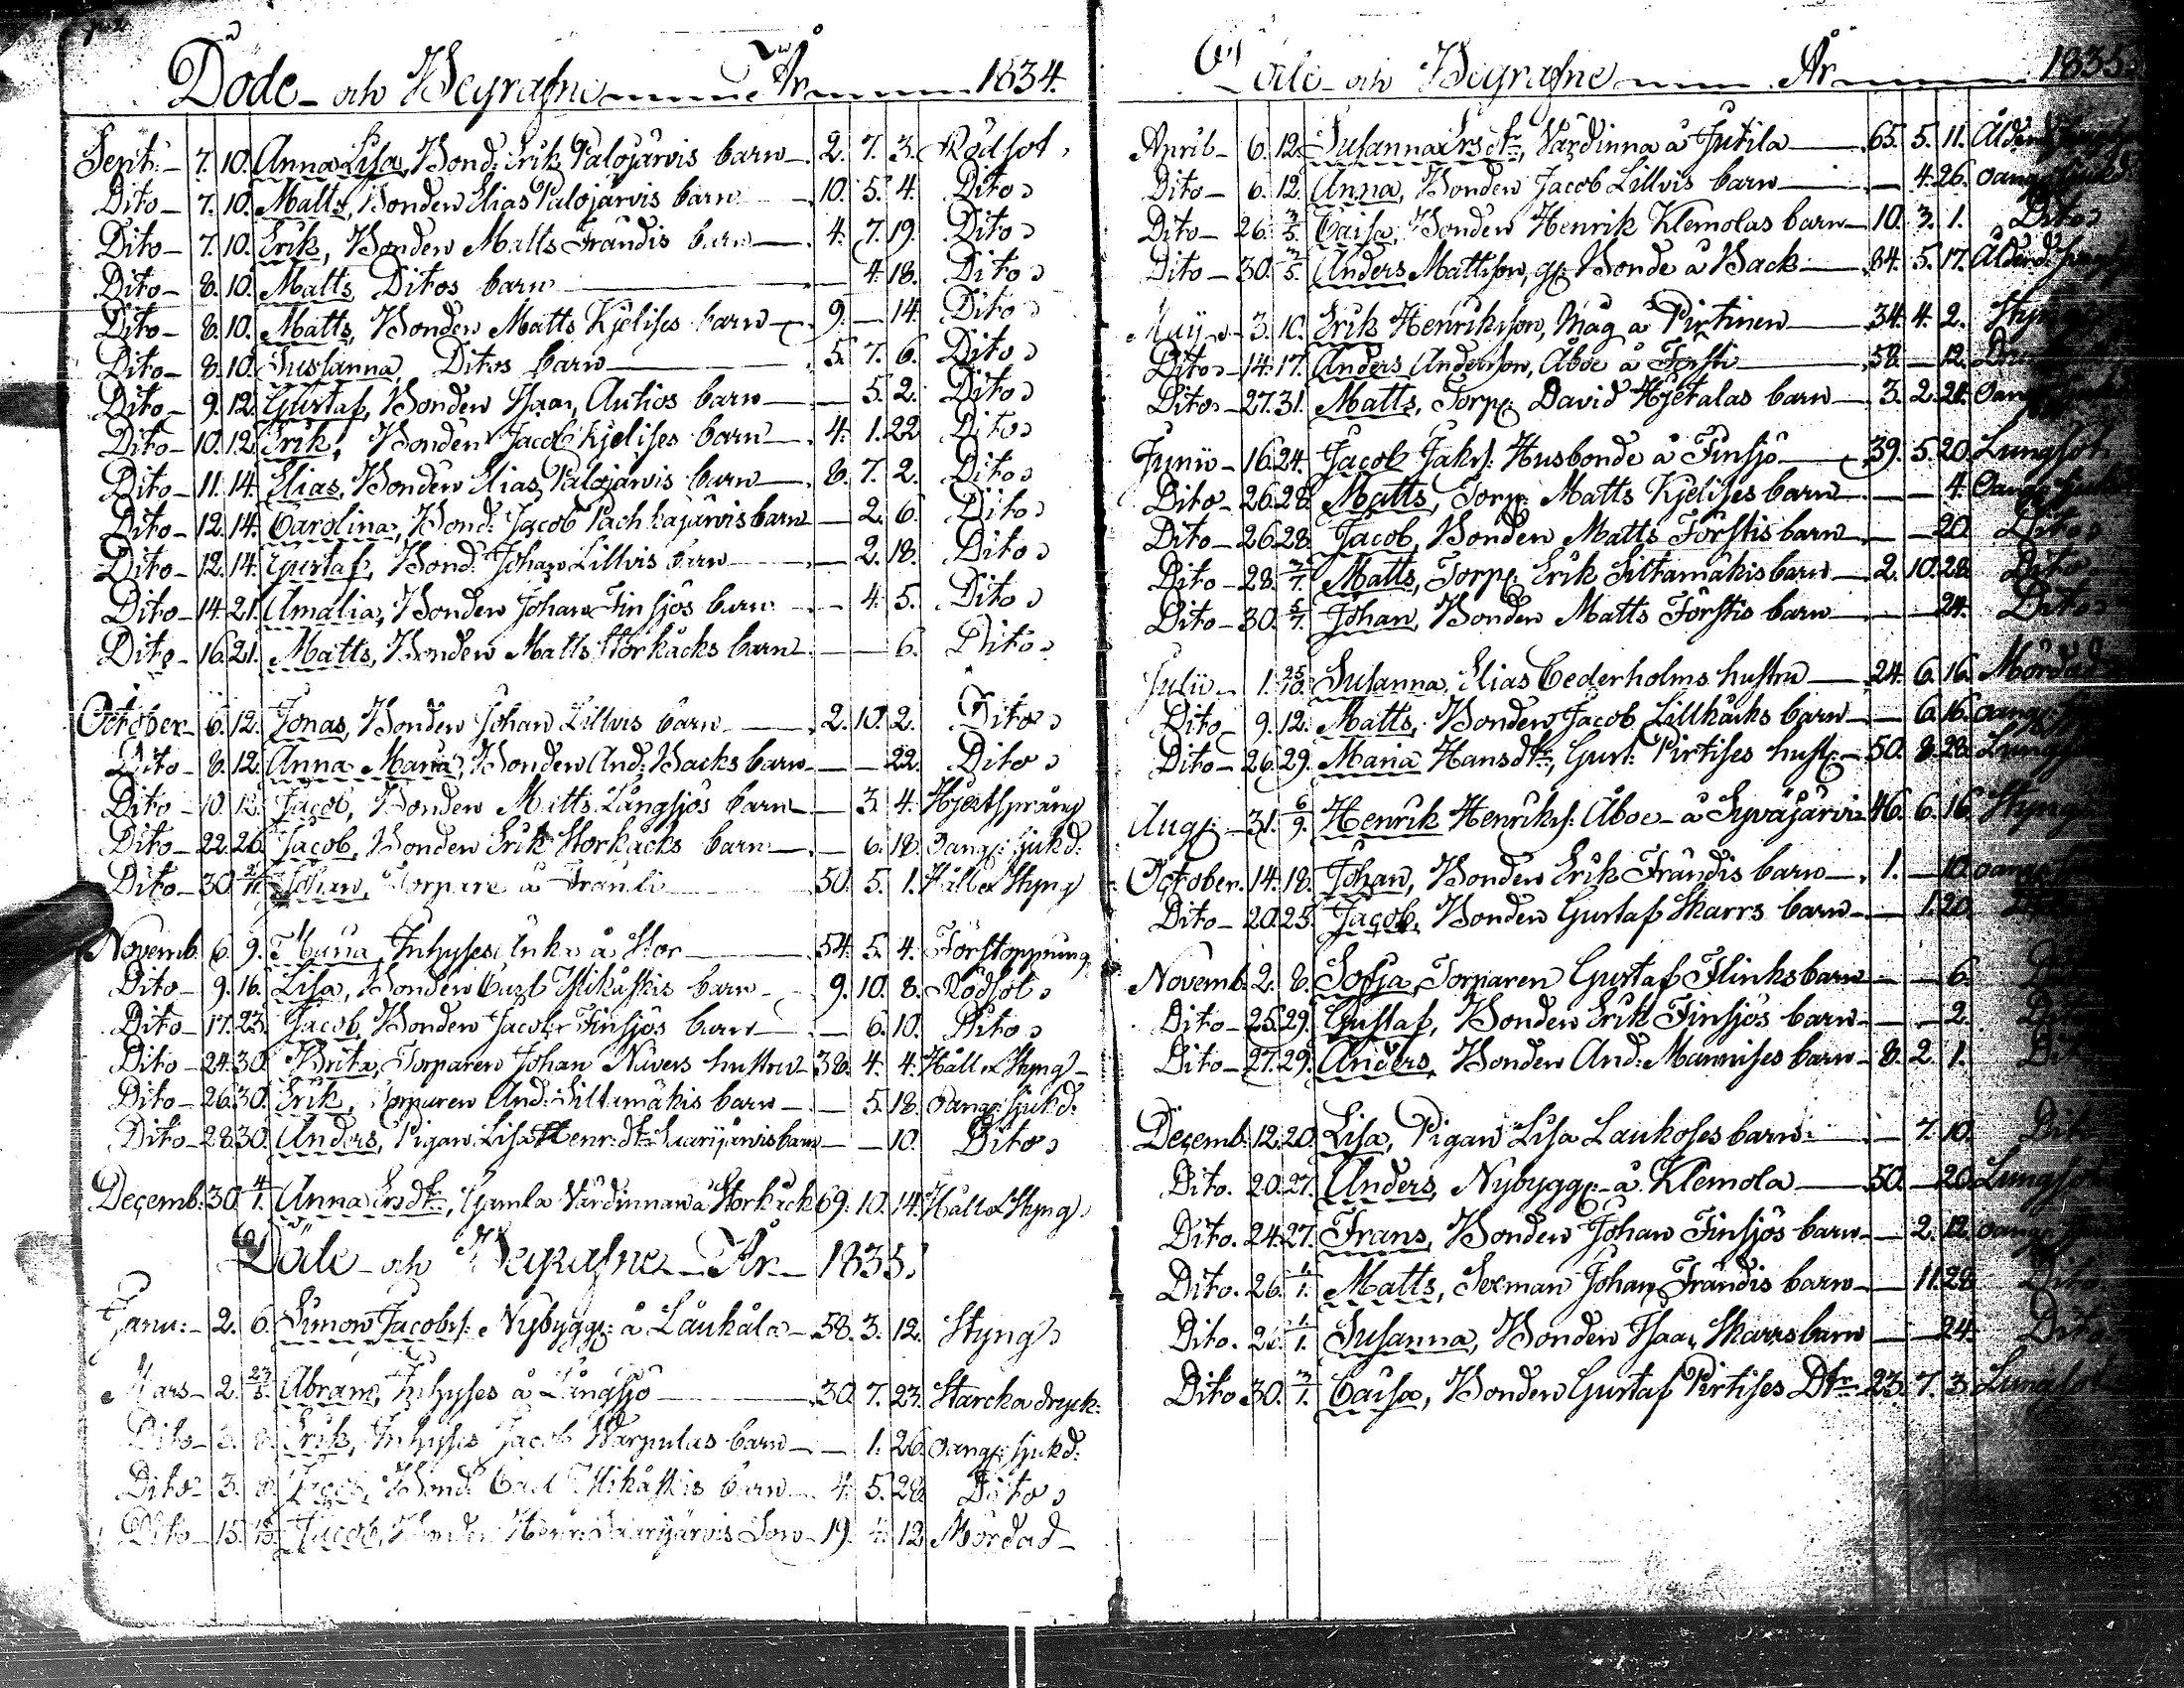 Döde och Begrafne År 1834.
Sept: 7. 10. Anna Lisa, Bond: Erik Palojärvis barn 2. 7. 3. Rödsot
Dito 7. 10. Matts, Bonden Elias Palojärvis barn 10. 5. 4. Dito
Dito 7. 10. Erik, Bonden Matts Frändis barn 4. 7. 19. Dito
Dito 8. 10. Matts, Ditos barn — 4. 18. Dito
Dito 8. 10. Matts, Bonden Matts Kjelises barn 9. — 14. Dito
Dito 8. 10. Susanna, Ditos barn 5. 7. 6. Dito
Dito 9. 12. Gustaf, Bonden Isaac Autios barn — 5. 2. Dito
Dito 10. 12. Erik, Bonden Jacob Kjelises barn 4. 1. 22 Dito
Dito 11. 14. Elias, Bonden Elias Palojärvis barn 8. 7. 2. Dito
Dito 12. 14. Carolina, Bond: Jacob Pachkajärvis barn — 2. 6. Dito
Dito 12. 14. Gustaf, Bond: Johan Lillvis barn — 2. 18. Dito
Dito 14. 21. Amalia, Bonden Johan Finsjös barn — 4. 5. Dito
Dito 16. 21. Matts, Bonden Matts Storkäcks barn — — 6. Dito
October 6. 12. Jonas, Bonden Johan Lillvis barn 2. 10. 2. Dito
Dito 8. 12. Anna Maria, Bonden And: Backs barn — — 22. Dito
Dito 10. 12. Jacob, Bonden Matts Långsjös barn — 3. 4. Hjertsprång
Dito 22. 26. Jacob, Bonden Erik Storkäcks barn — 6. 18. Oang: sjukd:
Dito 30. Johan, Torpare å 50. 5. 1. Håll o Styng
Novemb. 6. 9. Maria, Inhyses å Stor 54. 5. 4. Förstoppning
Dito 9. 16. Lisa, Bonden Carl barn 9. 10. 8. Rödsot
Dito 17. 23. Jacob, Bonden Jacob Finsjös barn — 6. 10. Dito
Dito 24. 30. Brita, Torparen Johan hustru 38. 4. 4. Håll o Styng
Dito 26. 30. Erik, Torparen And: Siltamäkis barn — 5. 18. Oang: sjukd:
Dito 28. 30. Anders, Pigan Lisa Henr: dtr Saarijärvis barn — — 10. Dito
Decemb: 30. 4/1. Anna Ersdtr, Gamla Värdinnan å Storkäck 69. 10. 14. Håll o Styng
Döde och Begrafne År 1835.
Janu: 2. 6. Simon Jacobs: Nybygg: å Laukala 58. 3. 12. Styng
Mars 2. Abram, Inhyses å Långsjö 30. 7. 23. Starcka dryck:
Dito 3. 8. Erik, Inhyses Jacob barn — 1. 26. Oang: sjukd:
Dito 3. 8. Jacob, Bond: Carl barn 4. 5. 28. Dito
Dito 15. Jacob, Bonden Henr: Saarijärvis Son 19. 12. Mördad
Döde och Begrafne År 1835.
April 6. 12. Susanna Ersdtr, Värdinna å Jutila 65. 5. 11.
Dito 6. 12. Anna, Bonden Jacob Lillvis barn — 4. 26. oang: sjukd:
Dito 26. 3/5. Caisa, Bonden Henrik Klemolas barn 10. 3. 1. Dito
Dito 30. 3/5. Anders Mattsson, g: Bonde å Back 84. 5. 17.
Maij 3. 10. Erik Henriksson, Måg å Pirtinen 34. 4. 2. Styng
Dito 14. 17. Anders Andersson, Åboe å Försti 58. — 12.
Dito 27. 31. Matts, Torp: David Hjetalas barn 3. 2. 21. Oang:
Junii 16. 24. Jacob Jakos: Husbonde å Finsjö 39. 5. 20. Lungsot
Dito 26. 28. Matts, Torp: Matts Kjelises barn — — 4. Oang: sjukd:
Dito 26. 28. Jacob, Bonden Matts Förstis barn — — 20. Dito
Dito 28. Matts, Torp: Erik Siltamäkis barn 2. 10. 28. Dito
Dito 30. 5/7. Johan, Bonden Matts Förstis barn — — 24. Dito
Julii 1. 25/10. Susanna, Elias Cederholms hustru 24. 6. 16. Mördad
Dito 9. 12. Matts, Bonden Jacob Lillkäcks barn — 6. 16. oang:
Dito 26. 29. Maria Hansdtr, Gust: Pirtises hust: 50. 8. 28.
Aug: 31. 6/9. Henrik Henriks: Åboe å Syväjärvi 46. 6. 16. Styng
October 14. 18. Johan, Bonden Erik Frändis barn 1. — 10. oang:
Dito 20. 25. Jacob, Bonden Gustaf Skarrs barn — 1. 20.
Novemb. 2. 8. Sofja, Torparen Gustaf Flinks barn — — 6.
Dito 25. 29. Gustaf, Bonden Erik Finsjös barn — — 2.
Dito 27. 29. Anders, Bonden And: Mannises barn 8. 2. 1. Dito
Decemb. 12. 20. Lisa, Pigan Lisa Laukoses barn — 7. 10. Dito
Dito. 20. 27. Anders, Nybygg: å Klemola 50. — 20. Lungsot
Dito. 24. 27. Frans, Bonden Johan Finsjös barn — 2. 12. oang:
Dito. 26. 1/1. Matts, Sexman Johan Frändis barn — 11. 28. Dito
Dito. 26. 1/1. Susanna, Bonden Isaac Skarrs barn — — 24. Dito
Dito 30. 3/1. Caisa, Bonden Gustaf Pirtises Dtr 23. 7. 3. Lungsot